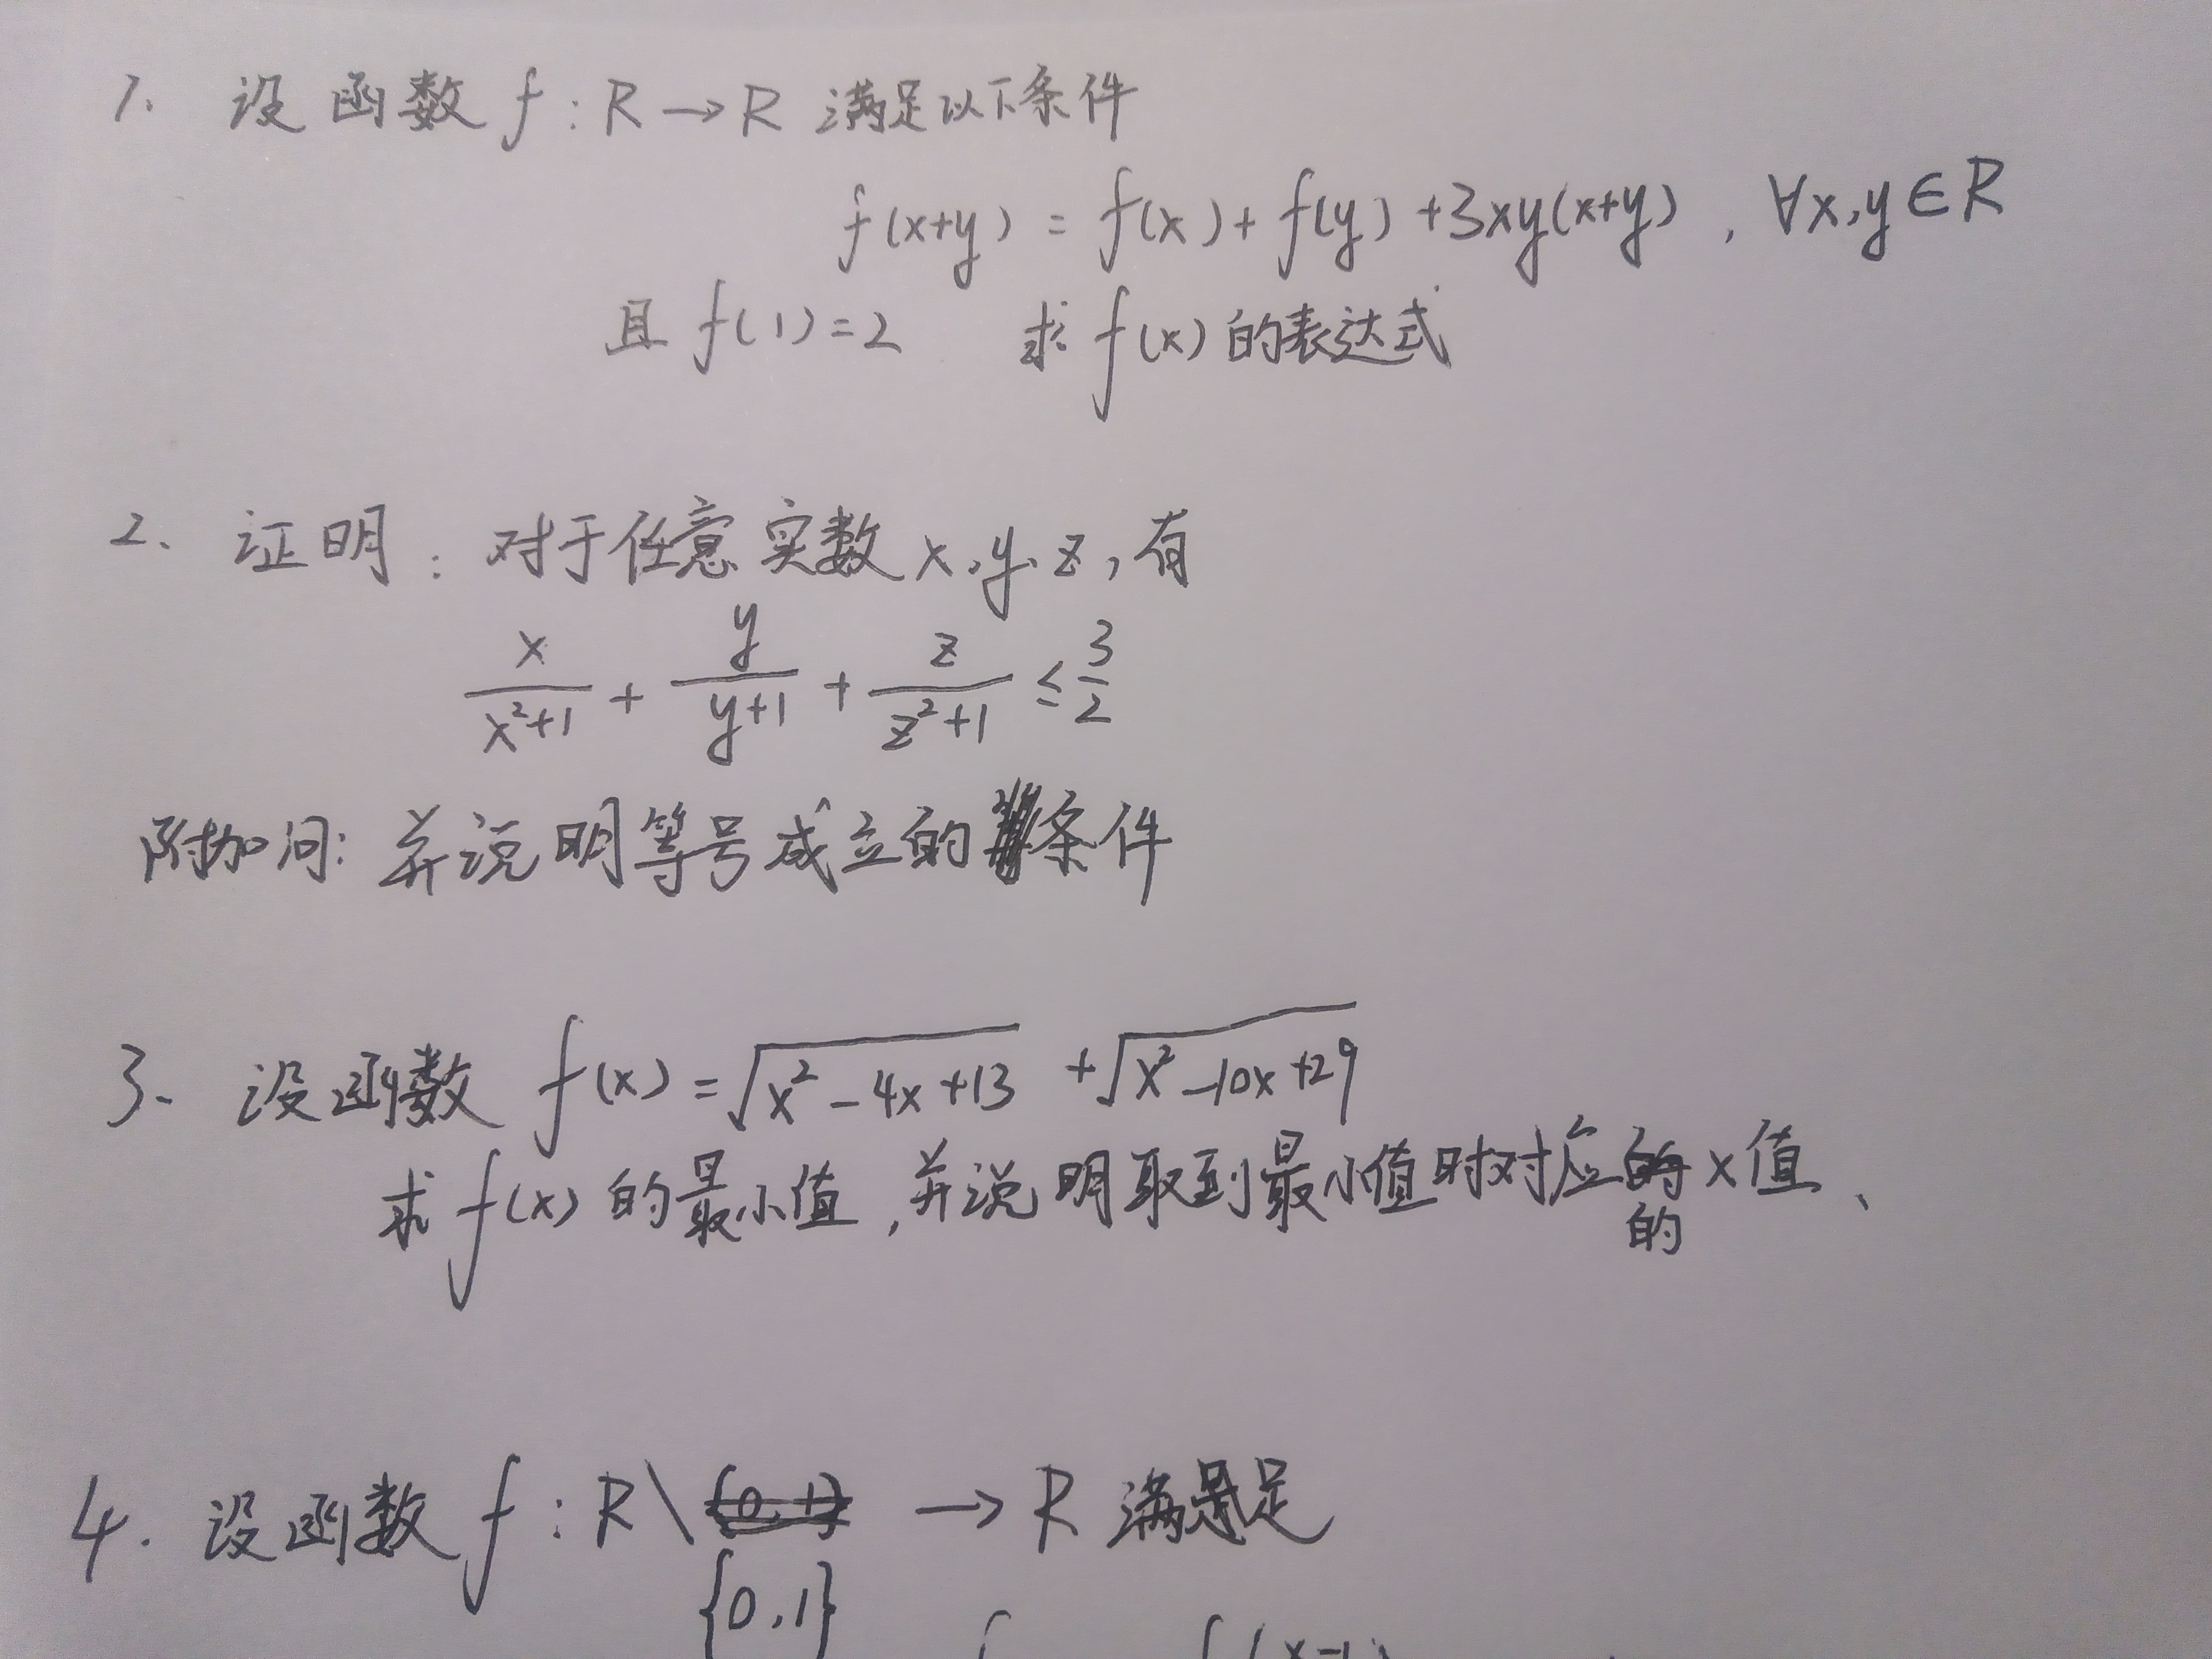 1. 设函数 f : R → R 满足以下条件
f(x+y) = f(x) + f(y) + 3xy(x+y) , ∀x,y ∈ R
且 f(1)=2 求 f(x) 的表达式
2. 证明：对于任意实数 x,y,z，有
x/(x²+1) + y/(y+1) + z/(z²+1) ≤ 3/2
附加问：并说明等号成立的条件
3. 设函数 f(x) = √(x²-4x+13) + √(x²-10x+29)
求 f(x) 的最小值，并说明取到最小值时对应的 x值、
4. 设函数 f : R \ {0,1} → R 满足